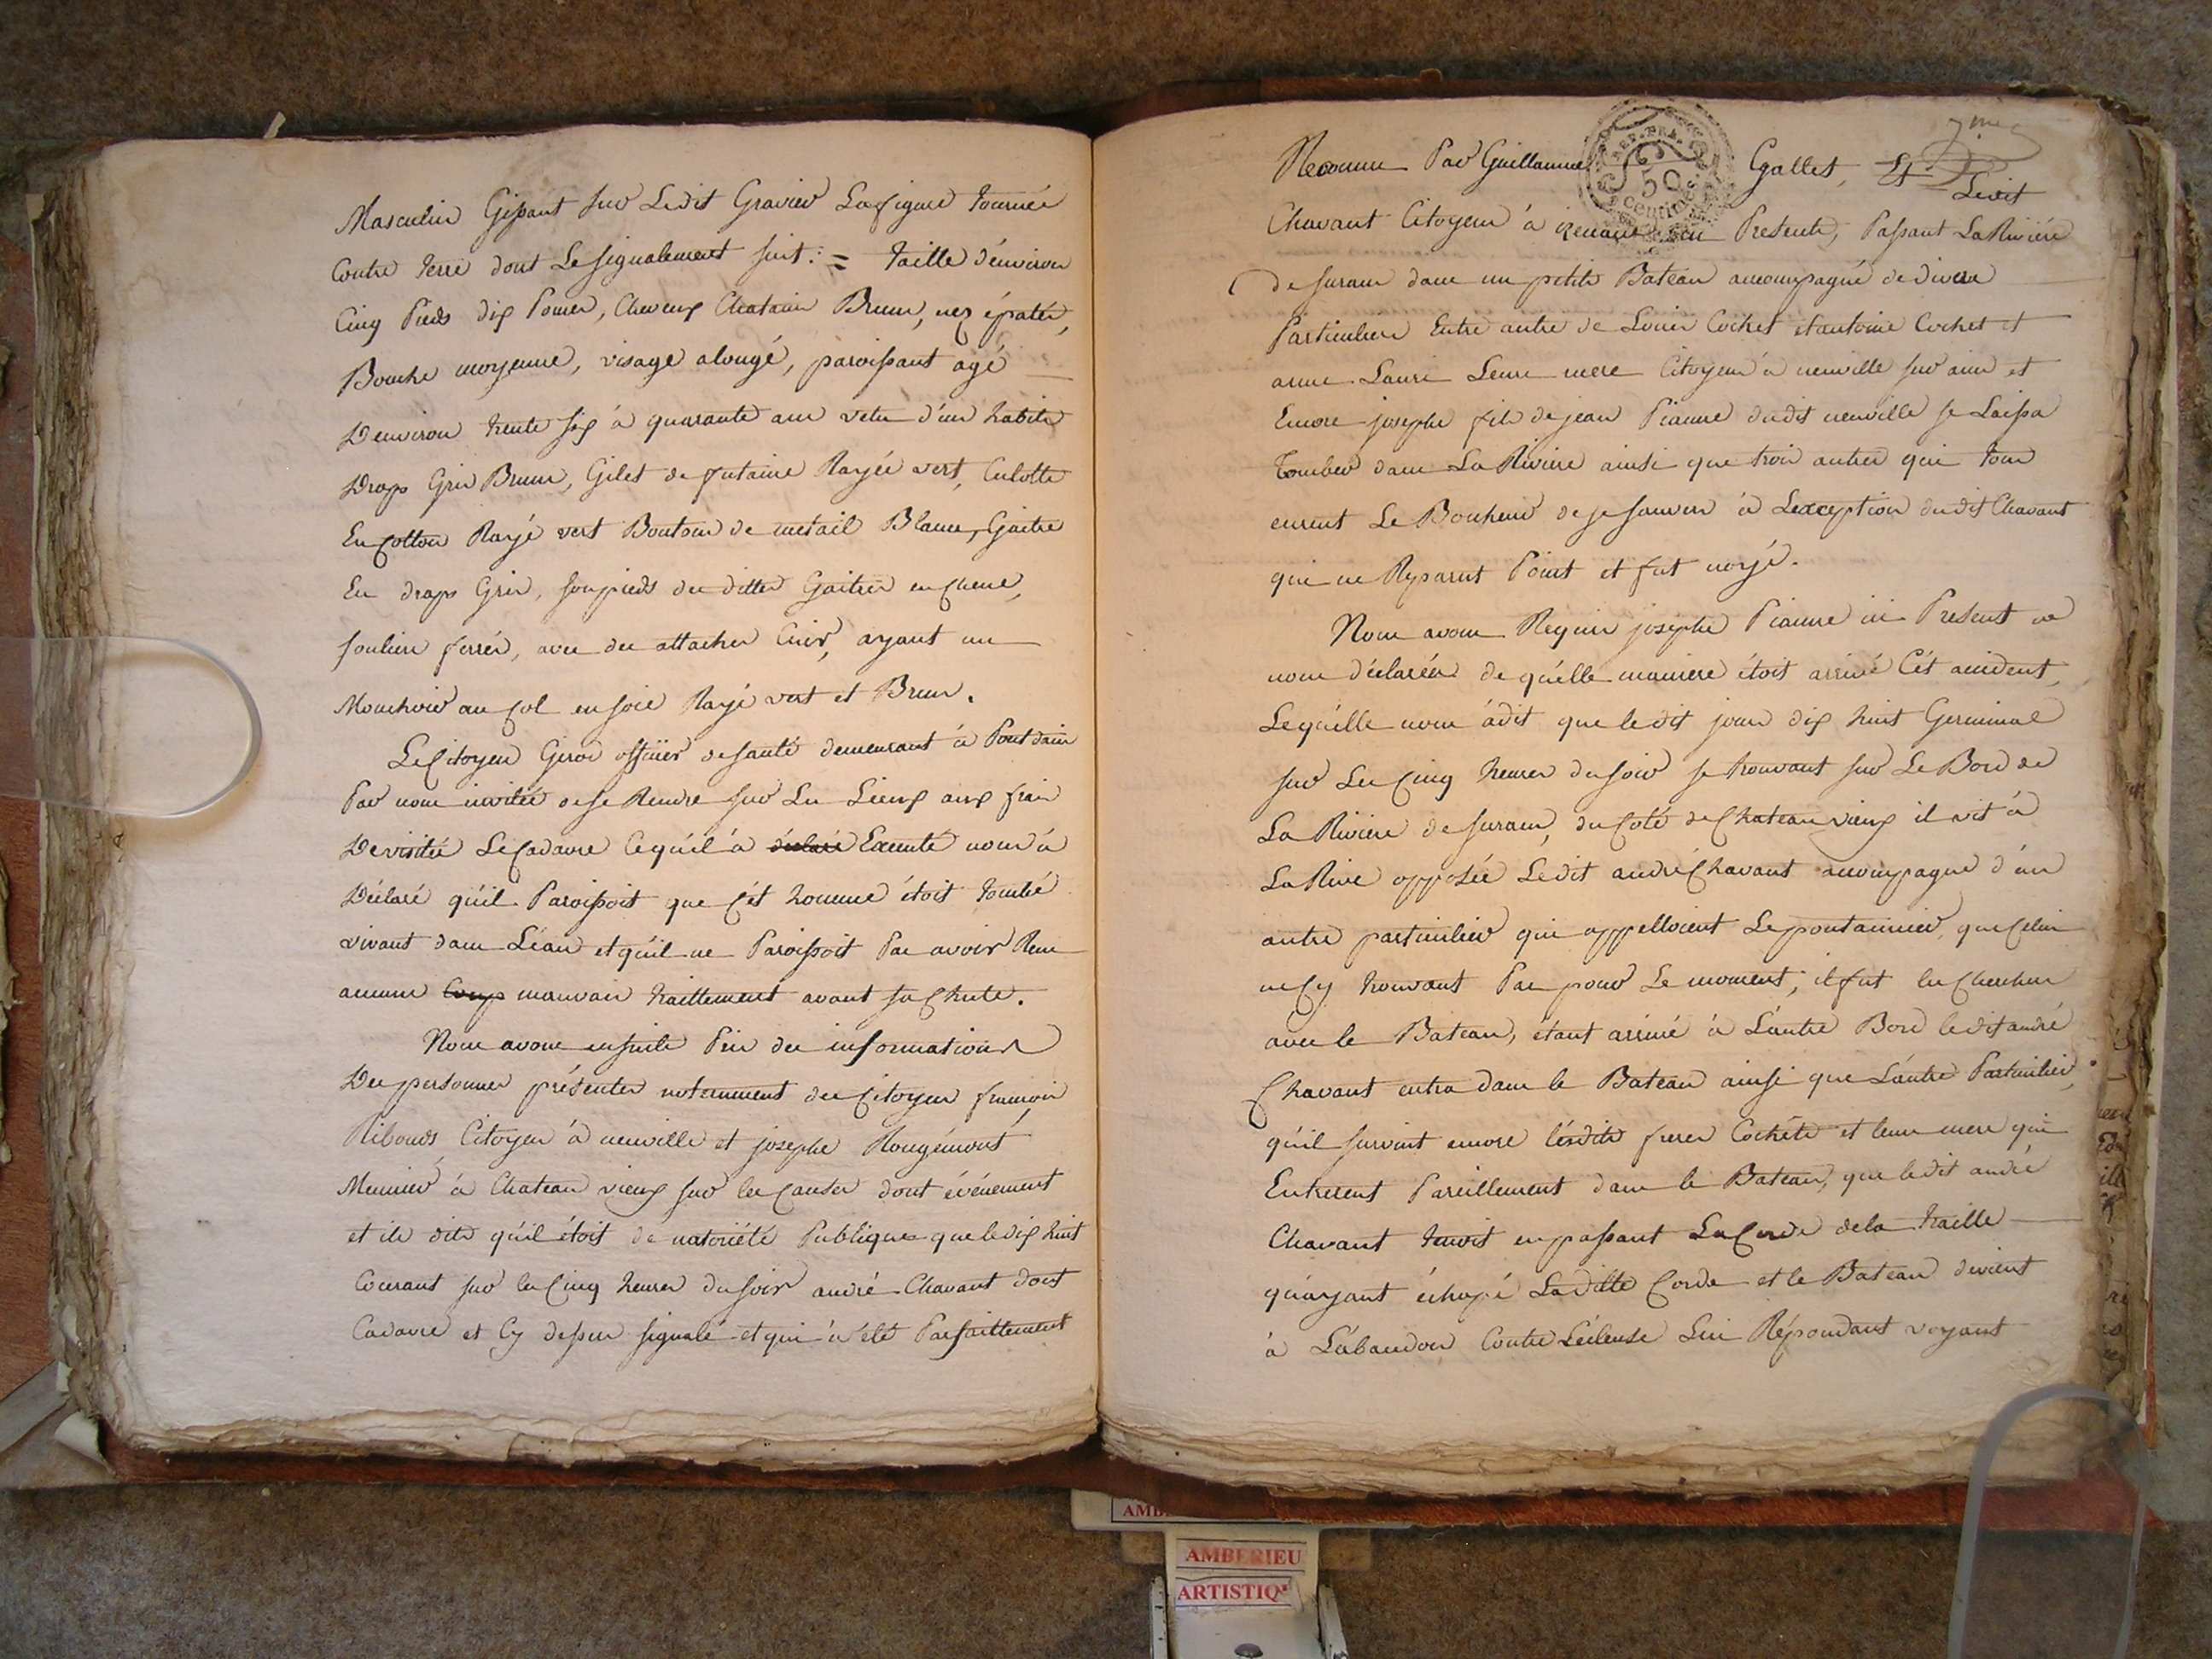 Masculin Gissant sur Ledit Gravier La figure tournée
Contre terre dont Le signalement suit : = taille d'environ
Cinq Pieds dix Pouces, Cheveux Chatain Brun, nez épatés,
Bouche moyenne, visage alongé, paroissant agé
D'environ trente six à quarante ans vetu d'un habits
Draps Gris Brun, Gilet de futaine Rayée vert, Culotte
En Cotton Rayé vert Boutons de metail Blanc, Gaitre
En draps Gris, soupieds des dittes Gaitres en Chene,
souliers ferrés, avec des attaches Cuir, ayant un
Mouchoir au Col en soie Rayé vert et Brun.
Le Citoyen Girod officier de santé demeurant à Pont dain
Par nous invitée de se Rendre sur Les Lieux aux frais
De visitée Le Cadavre Ce qu'il à déclaré Executé nous à
Déclaré qu'il Paroissoit que C'ét homme étoit tombé
vivant dans L'éau et qu'il ne Paroissoit Pas avoir Reçu
aucun Coup mauvais traittement avant sa Chute.
Nous avons ensuite Pris des informations
Des personnes présentes notamment des Citoyens francois
Ribouds Citoyen à neuville et josephe Rougémont
Meunier à Chateau vieux sur les Causes dont événement
et ils dits qu'il étoit de notoriété Publiques que le dix huit
Courant sur les Cinq heures du soir andré Chavant dont
Cadavre et Cy dessus signalé et qui à été Parfaittement
7me
Reconnu Par Guillaume Egallet, Et
Ledit
REP. FRA.
50
centimes
Chavant Citoyen à Present, Passant La Riviére
de surain dans un petits Bateau accompagné de divers
Particuliers Entre autre de Louis Cochet et antoine Cochet et
anne Lauri Leurs mere Citoyens à neuville sur ain et
Encore josephe fils de jean Pianne dudit neuville se Laissa
Tomber dans La Riviere ainsi que trois autres qui tous
eurent Le Bonheur de se sauver à L'exception dudit Chavant
qui ne Reparut Point et fut noyé.
Nous avons Requis josephe Pianne ici Present de
nous déclarér de qu'élle maniere étoit arrivé C'ét accident,
Lequélle nous à dit que ledit jour dix huit Germinal
sur Les Cinq heures du soir se trouvant sur Le Bord de
La Riviere de surain, du Coté de Chateau vieux il vit à
La Rive opposée Ledit andré Chavant accompagné d'un
autre particulier qui appelloient Le pontannier, que Celui
ne Cy trouvant Pas pour Le moment; il fut les Chercher
avec le Bateau, étant arrivé à L'autre Bord ledit andré
Chavant entra dans le Bateau ainsi que L'autre Particulier,
qu'il survint encore lésdits freres Cochéts et leur mere qui
Entrerent Pareillement dans le Bateau, que ledit andré
Chavant tenoit en passant La Corde de la traille
qu'ayant échapé Laditte Corde et le Bateau devient
à L'abandon Contre L'écluse Lui Répondant voyant
AMBERIEU
ARTISTIQ